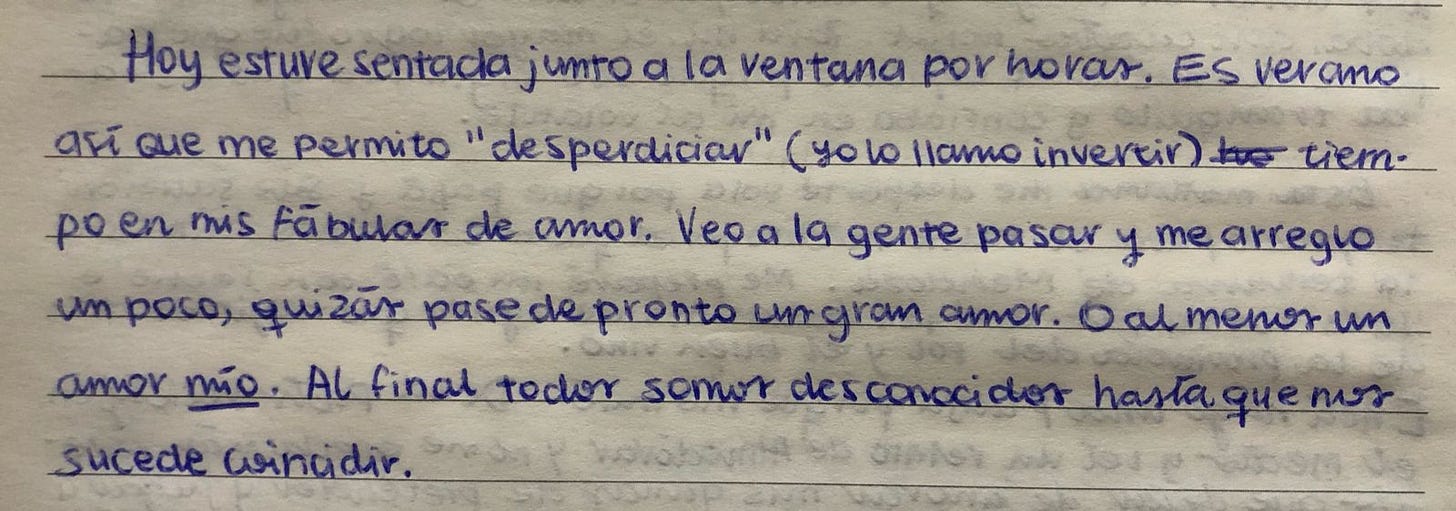 Hoy estuve sentada junto a la ventana por horas. Es verano
así que me permito "desperdiciar" (yo lo llamo invertir) tiem-
po en mis fábulas de amor. Veo a la gente pasar y me arreglo
un poco, quizás pase de pronto un gran amor. O al menos un
amor mío. Al final todos somos desconocidos hasta que nos
sucede coincidir.